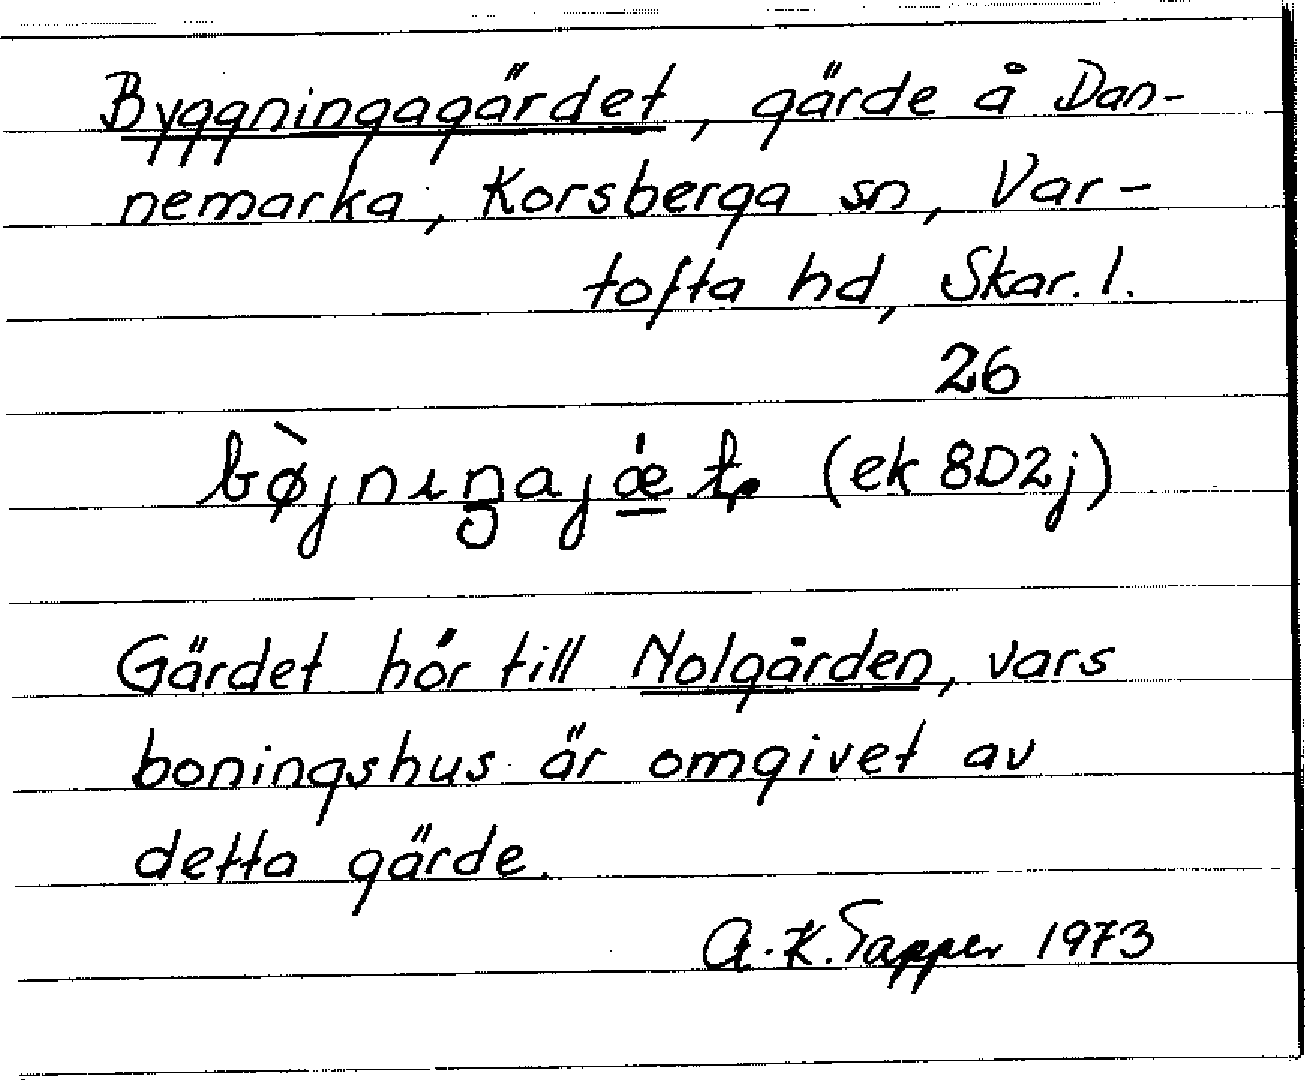 Byggningagärdet, gärde å Dan-
nemarka, Korsberga sn, Var-
tofta hd, Skar. l.
26
(ek 8D2j)
Gärdet hör till Nolgården, vars
boningshus är omgivet av
detta gärde.
A.K. Tapper 1973